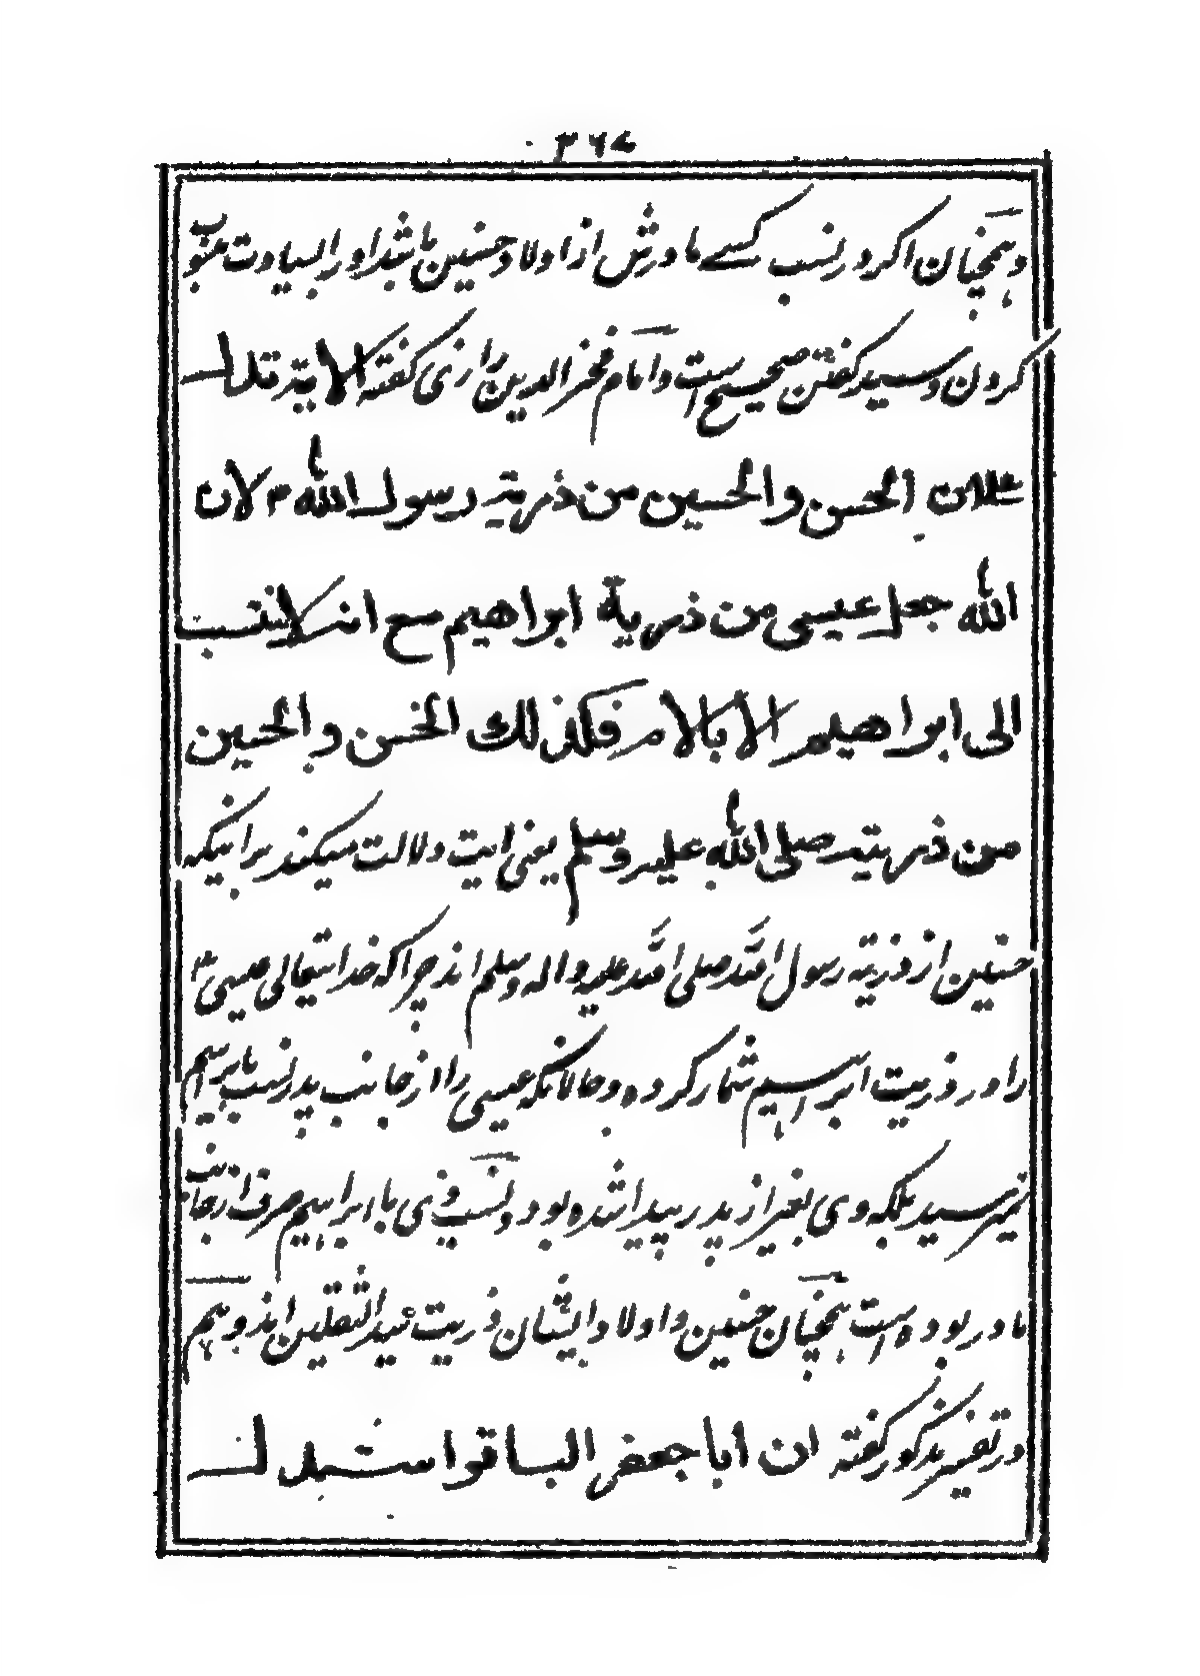 ۳۶۷
و همچنان اگر در نسب کسے مادرش از اولاد حسنین باشد او را بسیادت منسوب
کردن و سید گفتن صحیح است و امام فخر الدین رازی گفته الایة تدل
علی ان الحسن والحسین من ذریته رسول الله م لان
الله جعل عیسی من ذریة ابراهیم مع انه لاینتسب
الی ابراهیم الا بالام فکذلك الحسن والحسین
من ذریته صلی الله علیه وسلم یعنی ایت دلالت میکند براینکه
حسنین از ذریته رسول الله صلی الله علیه و اله وسلم اند چرا که خدایتعالی عیسی ۴
را در ذریت ابراهیم شمار کرده و حالانکه عیسی را از جانب پدر نسب بابراهیم
نمیرسید بلکه وی بغیر از پدر پیدا شده بود و نسب وی با ابراهیم صرف از جانب
مادر بوده است همچنان حسنین و اولاد ایشان ذریت سید الثقلین اند و هم
در تفسیر مذکور گفته ان ابا جعفر الباقر استدل